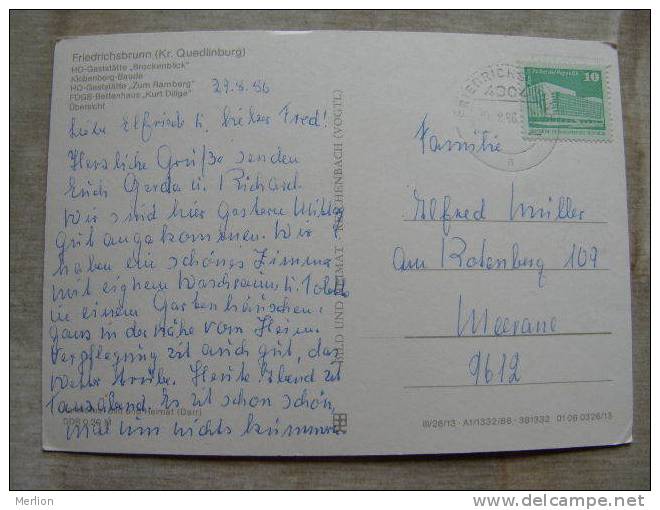 Friedrichsbrunn (Kr. Quedlinburg)
HO-Gaststätte „Brockenblick“
Klobenberg-Baude
HO-Gaststätte „Zum Ramberg“
FDGB-Bettenhaus „Kurt Dillge“
Übersicht
29.8.86
Liebe Elfriede u. lieber Fred!
Herzliche Grüße senden
Euch Gerda u. Richard.
Wir sind hier Gestern Mittag
gut angekommen. Wir
haben ein schönes Zimmer
mit eignem Waschraum u. Toilette
in einem Gartenhäuschen.
Ganz in der Nähe vom Heim.
Verpflegung ist auch gut, das
Wetter trübe. Heute Abend ist
Tanzabend. Es ist schon schön,
mal um nichts kümmern.
BILD UND HEIMAT REICHENBACH (VOGTL)
Familie
Elfred Müller
Am Rotenberg 109
Meerane
9612
FRIEDRICHS
10
III/26/13 · A1/1332/86 · 381332 01 06 0326/13
Merlion
www.delcampe.net